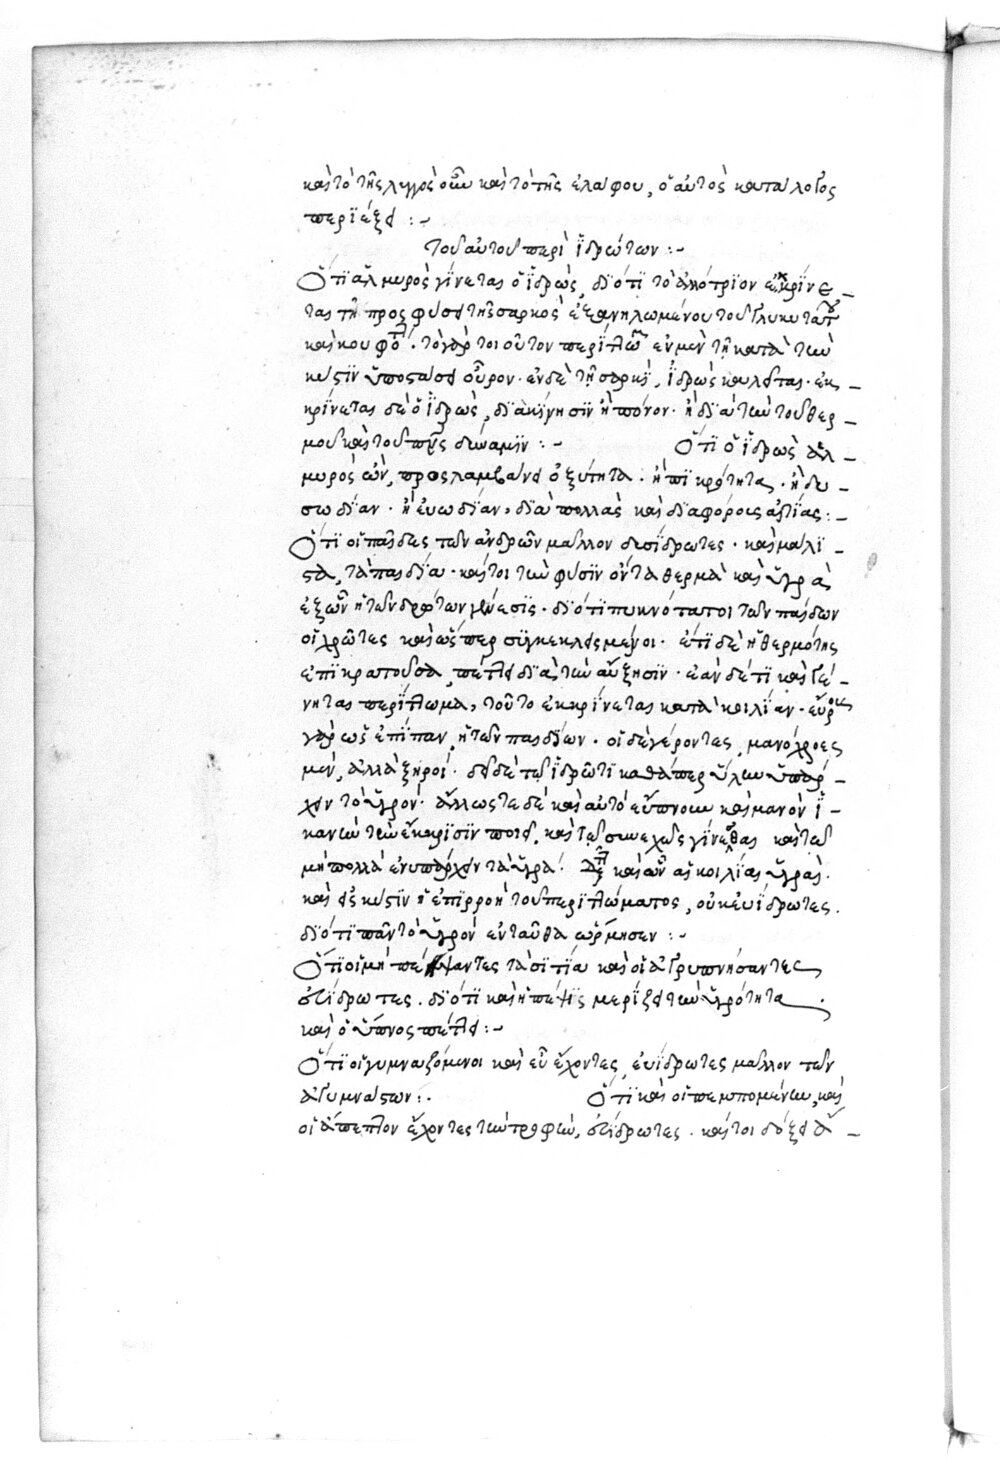 καὶ τὸ τῆς λυγγὸς οὖν καὶ τὸ τῆς ἐλάφου, ὁ αὐτὸς κατάλογος
περιέξει :~
Τοῦ αὐτοῦ περὶ ἱδρώτων :~
Ὅτι ἁλμυρὸς γίνεται ὁ ἱδρὼς, διότι τὸ ἀλλότριον ἐκκρίνε_
ται τῇ πρὸς φύσει τῆς σαρκὸς ἐξανηλωμένου τοῦ γλυκυτάτου
καὶ κουφο. τὸ γάρ τοι οὗτον περίττωμα ἐν μὲν τῇ κατὰ τὴν
κύστιν ὑποστάσει οὖρον· ἐν δὲ τῇ σαρκὶ, ἱδρὼς καλεῖται· ἐκ_
κρίνεται δὲ ὁ ἱδρὼς, διὰ κίνησιν ἢ πόνον· ἢ διὰ τὴν τοῦ θερ_
μοῦ καὶ τοῦ πυρὸς δύναμιν :~ Ὅτι ὁ ἱδρὼς ἁλ_
μυρὸς ὢν, προσλαμβάνει ὀξύτητα· ἢ πικρότητα, · ἢ δυ_
σωδίαν· ἢ εὐωδίαν, διὰ πολλὰς καὶ διαφόροις αἰτίας :_
Ὅτι οἱ παῖδες τῶν ἀνδρῶν μᾶλλον δυσίδρωτες· καὶ μάλι_
στα, τὰ παιδία· καίτοι τὴν φύσιν ὄντα θερμὰ καὶ ὑγρὰ
ἐξ ὧν ἡ τῶν ἱδρώτων γένεσις· διότι πυκνότατοι τῶν παίδων
οἱ χρῶτες καὶ ὥσπερ συγκεκλεισμένοι· ἔτι δὲ ἡ θερμότης
ἐπικρατοῦσα, πέττει διὰ τὴν αὔξησιν· ἐὰν δέ τι καὶ γέ_
νηται περίττωμα, τοῦτο ἐκκρίνεται κατὰ κοιλίαν· εὔρους
γὰρ ὡς ἐπίπαν, ἡ τῶν παιδίων. οἱ δὲ γέροντες, μανόχροες
μὲν, ἀλλὰ ξηροί· δεῖ δὲ τῷ ἱδρῶτι καθάπερ ὕλην ὑπάρ_
χειν τὸ ὑγρόν· ἄλλως τε δὲ καὶ αὐτὸ εὔπνουν καὶ μανὸν ἱ_
κανὴν τὴν ἔκκρισιν ποιεῖ, καὶ τῷ συνεχῶς γίνεσθαι καὶ τῷ
μὴ πολλὰ ἐνυπάρχειν τὰ ὑγρά· καὶ ὧν αἱ κοιλίαι ὑγραὶ.
καὶ εἰς κύστιν ἡ ἐπιρροὴ τοῦ περιττώματος, οὐκ εὐίδρωτες.
διότι πᾶν τὸ ὑγρὸν ἐνταῦθα ὥρμησεν :~
Ὅτι οἱ μὴ πέψαντες τὰ σιτία καὶ οἱ ἀγρυπνήσαντες
εὐίδρωτες. διότι καὶ ἡ πέψις μερίζει τὴν ὑγρότητα
καὶ ὁ ὕπνος πέττει :~
Ὅτι οἱ γυμναζόμενοι καὶ εὖ ἔχοντες, εὐίδρωτες μᾶλλον τῶν
ἀγυμνάστων :. Ὅτι καὶ οἱ πεμπομένην, καὶ
οἱ ἄπεπτον ἔχοντες τὴν τροφὴν, εὐίδρωτες. καίτοι δόξει ἂ_